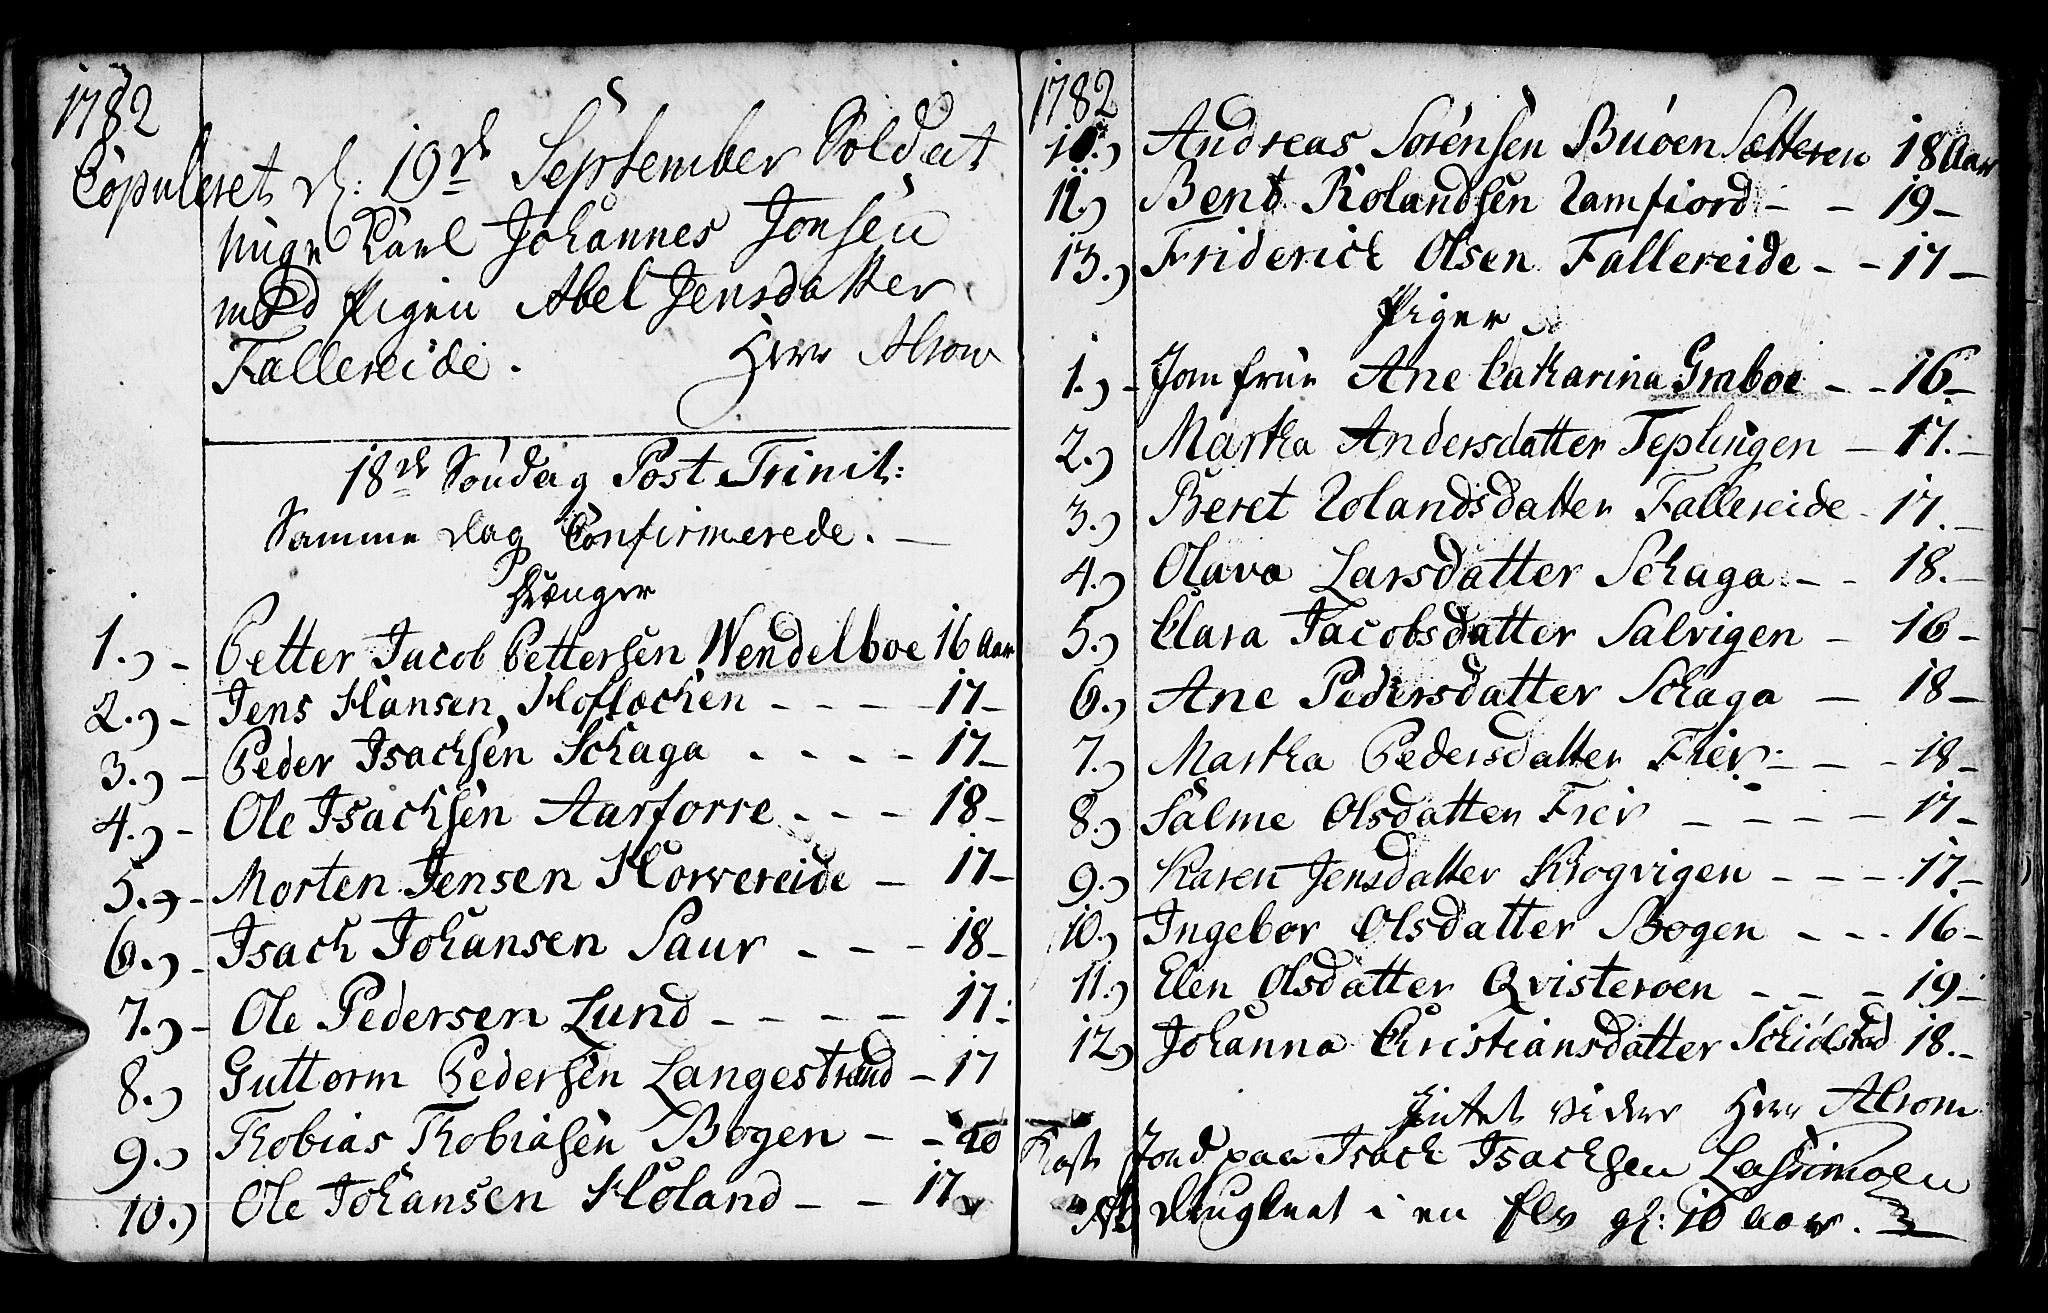 1782
Copuleret d: 19de September Soldat
unge Karl Johannes Jonsen
med Pigen Abel Jensdatter
Fallereide. Herr Alsom
18de Søndag Post Trinit:
Samme Dag Confirmerede. —
Drænger
1.) - Petter Jacob Pettersen Wendelboe 16 Aar
2.) - Jens Hansen Hoflochen - - - - 17 -
3.) - Peder Isachsen Schaga - - - - 17 -
4.) - Ole Isachsen Aarforre - - - 18 -
5.) - Morten Jensen Horvereide - 17 -
6.) - Isach Johansen Saur - - - 18 -
7.) - Ole Pedersen Lund - - - - - 17 -
8.) Guttorm Pedersen Langestrand - 17
9.) Thobias Thobiasen Bogen - - 20
10.) Ole Johansen Høland - - 17
1782
Andreas Sørensen Buøen Sætteren 18 Aar
12.) Bent Rolandsen Ramfiord - - 19 -
13.) Friderich Olsen Fallereide - - 17 -
Piger
1.) - Jomfrue Ane Catharina Graboe - - 16 -
2.) Martha Andersdatter Teplingen - 17. -
3.) Beret Rolandsdatter Fallereide - 17. -
4.) Olava Larsdatter Schaga - - 18. -
5.) Clara Jacobsdatter Salvigen - 16 -
6.) Ane Pedersdatter Schaga - 18 -
7.) Martha Pedersdatter Fier - - - 18 -
8.) Salme Olsdatter Fier - - - - - 17 -
9.) Karen Jensdatter Krogvigen - - - - 17. -
10.) Ingebor Olsdatter Bogen - - - 16 -
11.) Elen Olsdatter Qvisteroen - - - 19 -
12) Johanna Christiansdatter Schiølstad 18. -
Intet vider Herr Alsom
Kast Jord paa Isach Isachsen
druknet i en Elv gl: 16 Aar.